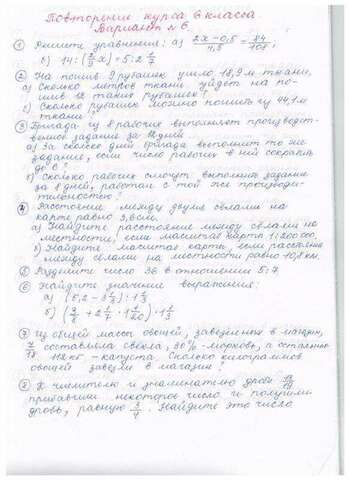 Повторение курса 6 класса.
Вариант №6.
① Решите уравнения: а) (2x-0,5)/4,5 = 84/105;
б) 14:(2/3x)=5:2 1/7
② На пошив 9 рубашек ушло 18,9 м ткани.
а) Сколько метров ткани уйдёт на по-
шив 12 таких рубашек?
б) Сколько рубашек можно пошить из 44,1 м
ткани?
③ Бригада из 8 рабочих выполняет производст-
венное задание за 12 дней.
а) За сколько дней бригада выполнит то же
задание, если число рабочих в ней сократить
до 6?
б) Сколько рабочих смогут выполнить задание
за 8 дней, работая с той же производи-
тельностью?
④ Расстояние между двумя сёлами на
карте равно 3,6 см.
а) Найдите расстояние между сёлами на
местности, если масштаб карты 1:200 000.
б) Найдите масштаб карты, если расстояние
между сёлами на местности равно 10,8 км.
⑤ Разделите число 36 в отношении 5:7.
⑥ Найдите значение выражения:
а) (5,2-3
б)
⑦ Из общей массы овощей, завезённых в магазин,
составляла свёкла, 30% -морковь, а остальные
112 кг -капуста. Сколько килограммов
овощей завезли в магазин?
⑧ К числителю и знаменателю дроби
прибавили некоторое число и получили
дробь, равную 3/4. Найдите это число